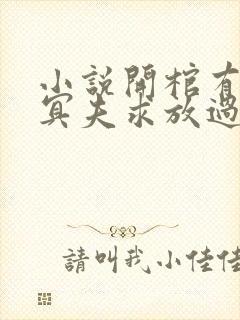 小說開棺有
冥夫求放過
請叫我小佳佳